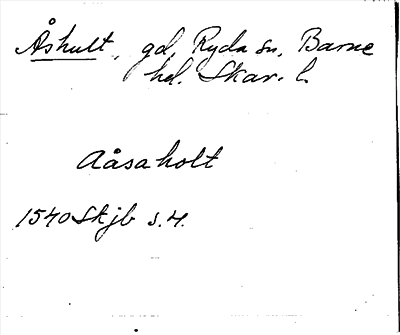 Åshult, gd, Ryda sn, Barne
hd. Skar. l.
Aåsaholt
1540 Skjb s. 4.